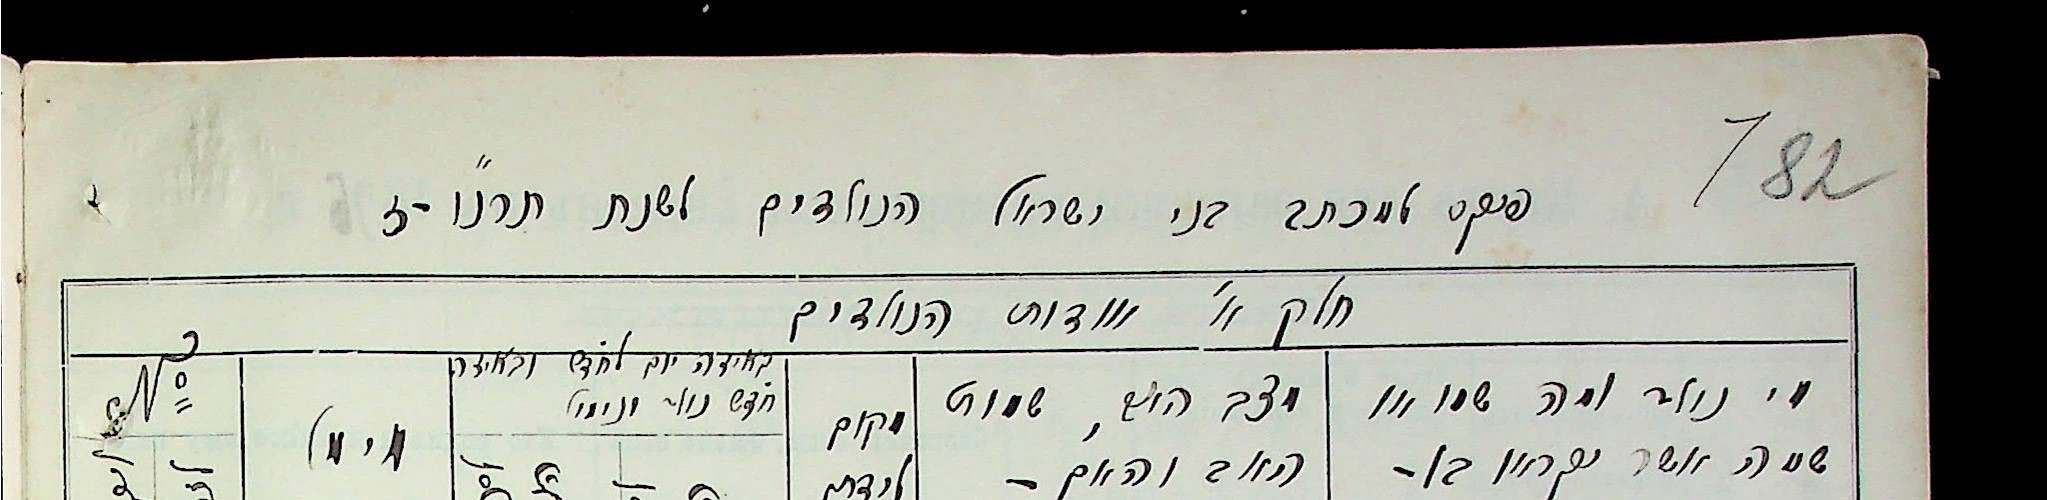 82
פנקס למכתב בני ישראל הנולדים לשנת תרנ״ו-ז
חלק א׳ אודות הנולדים
מי נולד ומה שמו או
שמה אשר יקראו בו-
מצב האב, שמות
האב והאם -
מקום
לידת
באיזה יום לחדש ובאיזה
חדש נולד ונימול
מי מל
№